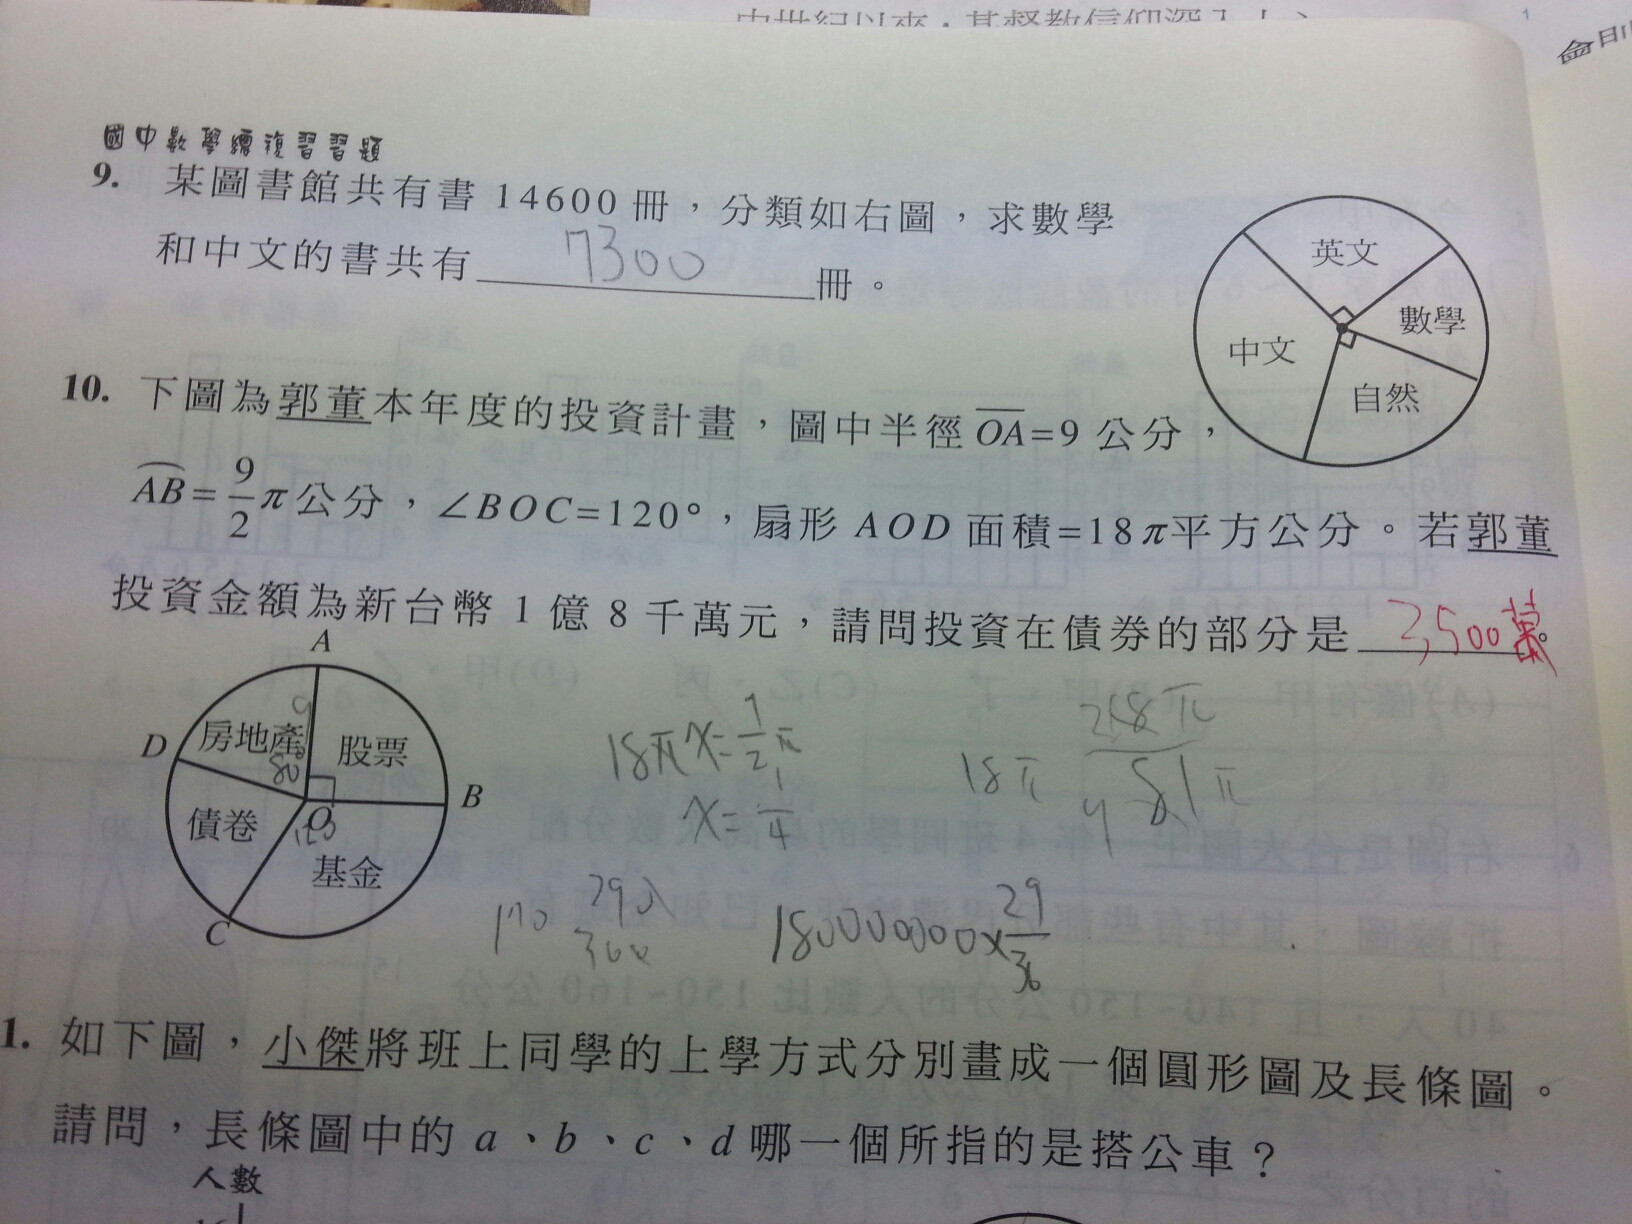 中世紀以來，基督教信仰深入人心
1
國中數學總複習習題
9. 某圖書館共有書 14600 冊，分類如右圖，求數學
和中文的書共有 7300 冊。
英文
數學
中文
自然
10. 下圖為郭董本年度的投資計畫，圖中半徑 OA=9 公分，
AB=9/2π公分，∠BOC=120°，扇形 AOD 面積=18π平方公分。若郭董
投資金額為新台幣 1 億 8 千萬元，請問投資在債券的部分是 3,500萬。
A
D
房地產
股票
B
O
債卷
120
基金
C
9
80
18π x=1/2π
x=1/4
18π
81π
170
290
360
180000000×29/36
1. 如下圖，小傑將班上同學的上學方式分別畫成一個圓形圖及長條圖。
請問，長條圖中的 a、b、c、d 哪一個所指的是搭公車？
人數